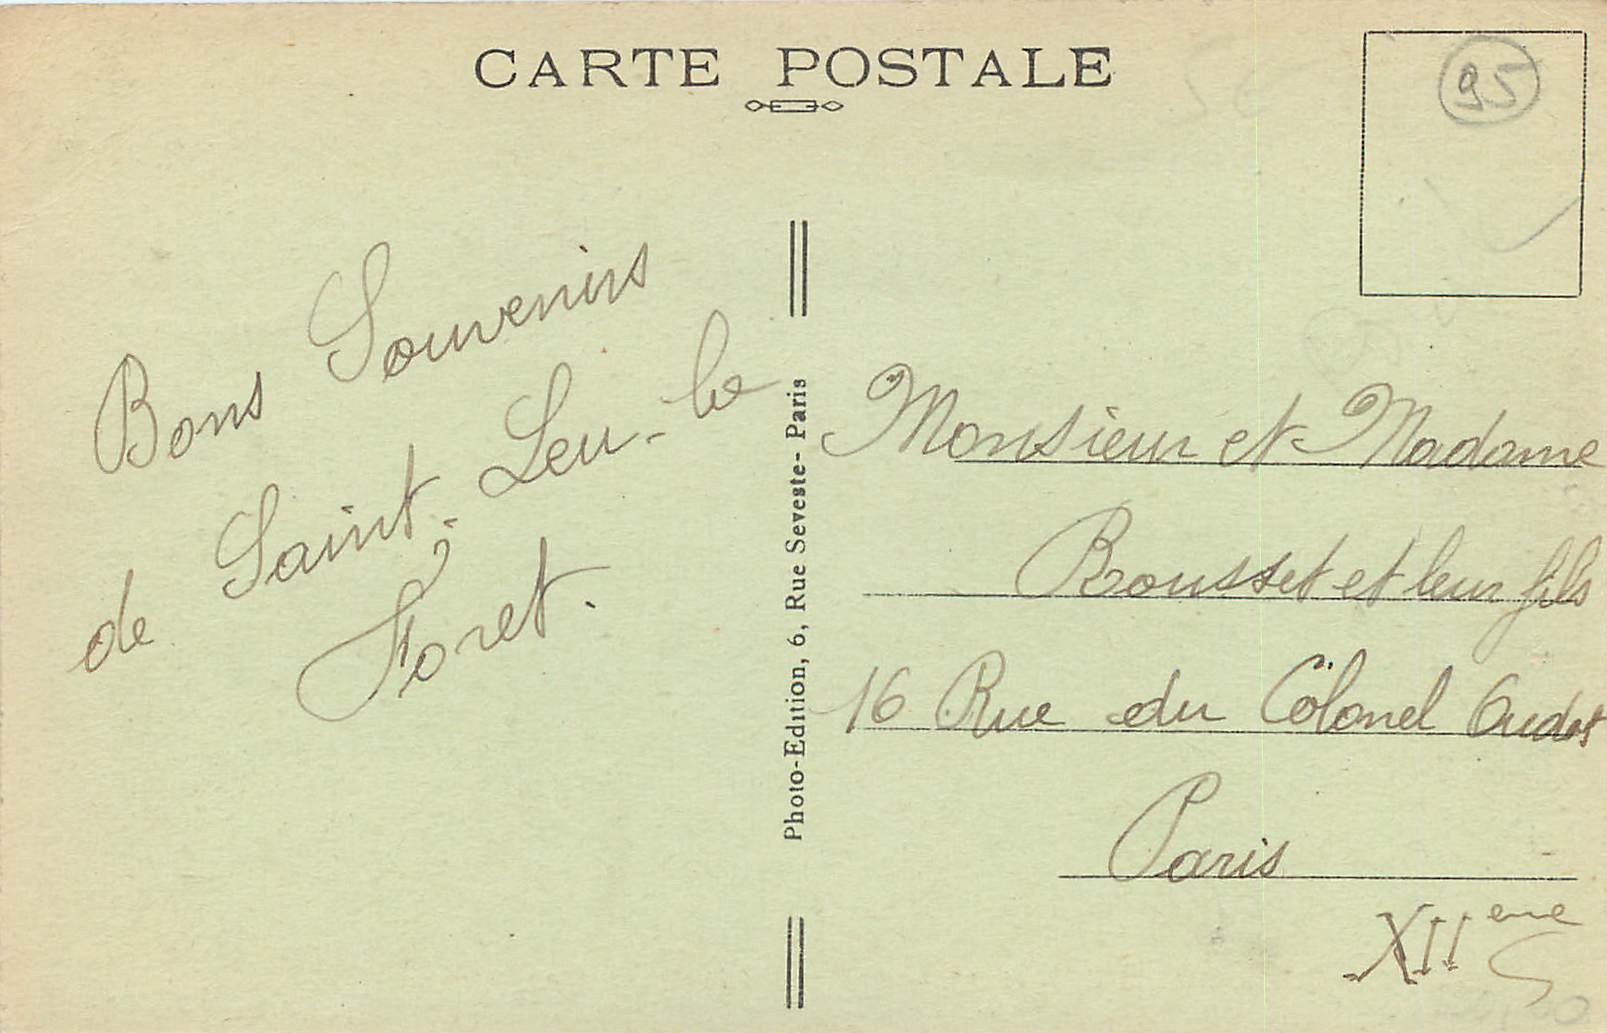 CARTE POSTALE
95
Bons Souvenirs
de Saint-Leu-la
Foret.
Photo-Edition, 6, Rue Seveste- Paris
Monsieur et Madame
Rousset et leur fils
16 Rue du Colonel Oudot
Paris
XII eme